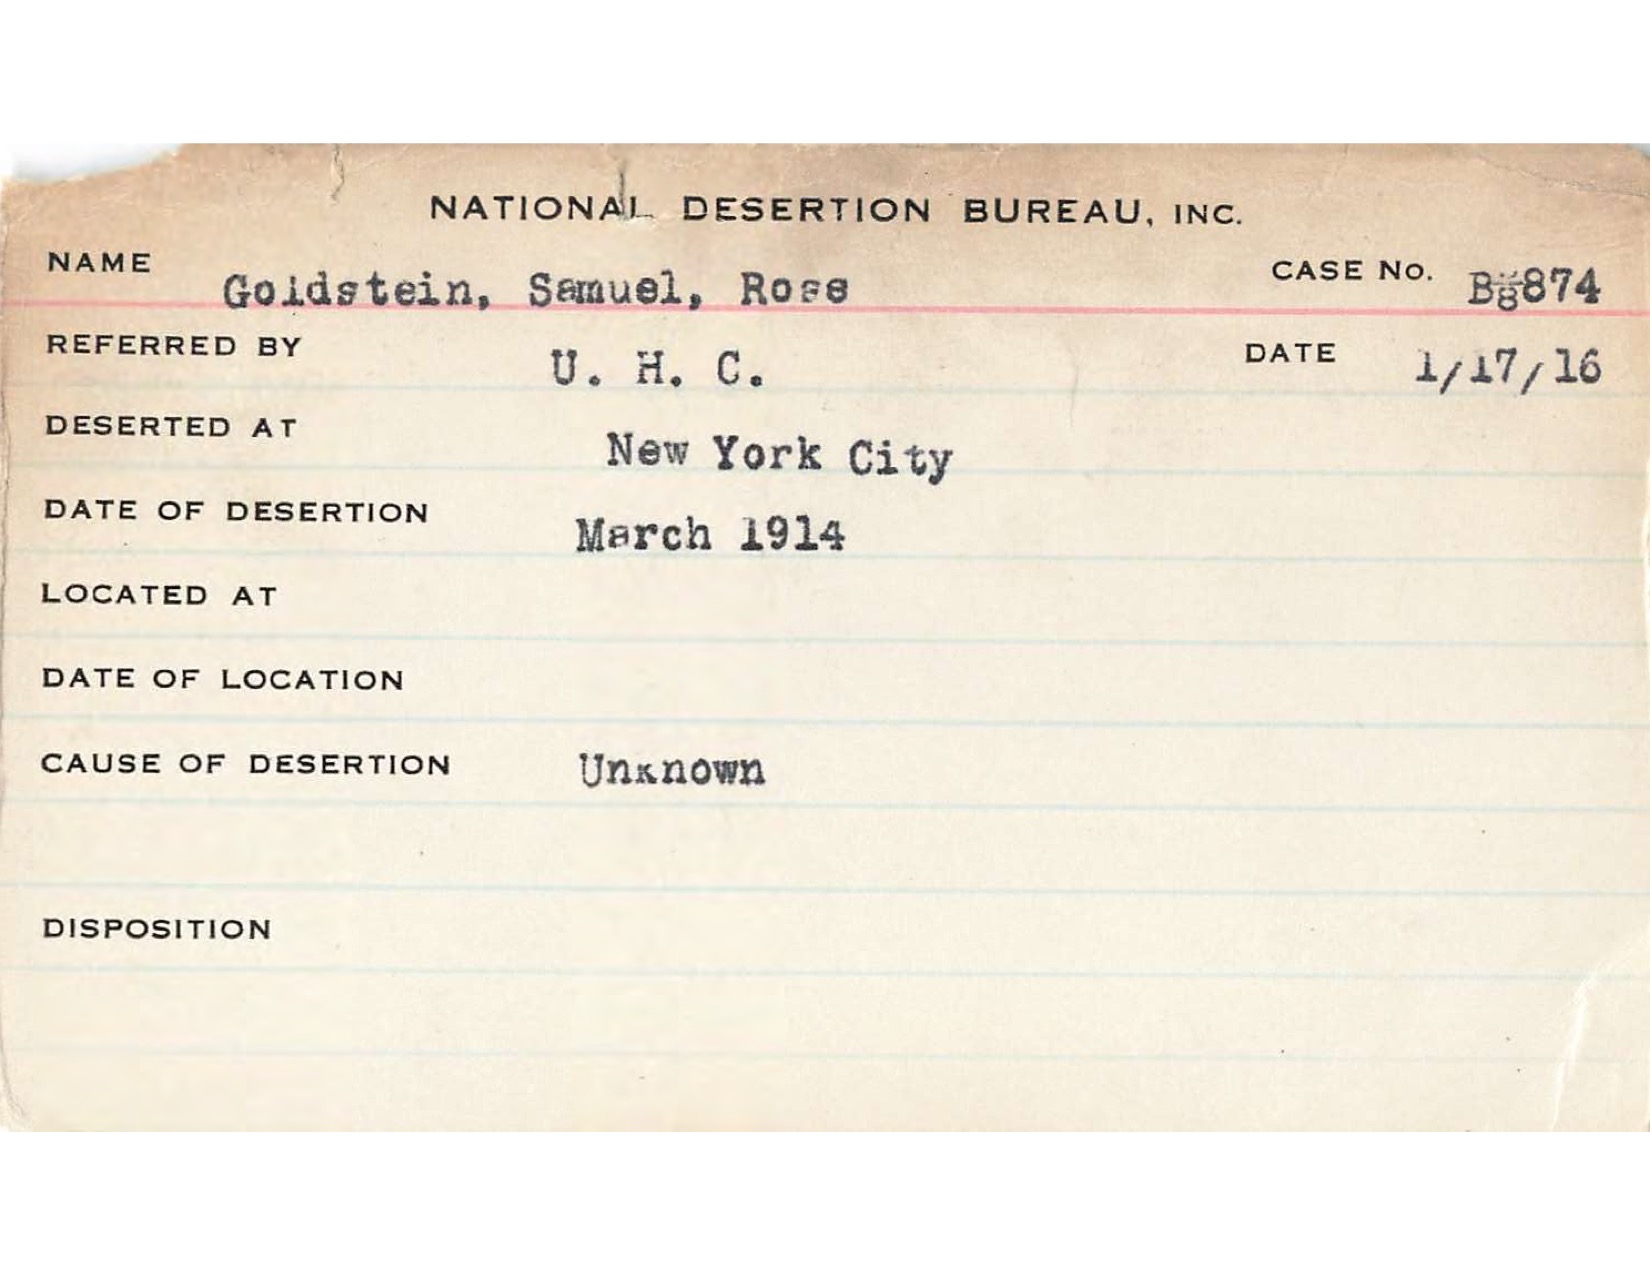 NATIONAL DESERTION BUREAU, INC.
NAME Goldstein, Samuel, Rose CASE No. B8874
REFERRED BY U. H. C. DATE 1/17/16
DESERTED AT New York City
DATE OF DESERTION March 1914
LOCATED AT
DATE OF LOCATION
CAUSE OF DESERTION Unknown
DISPOSITION